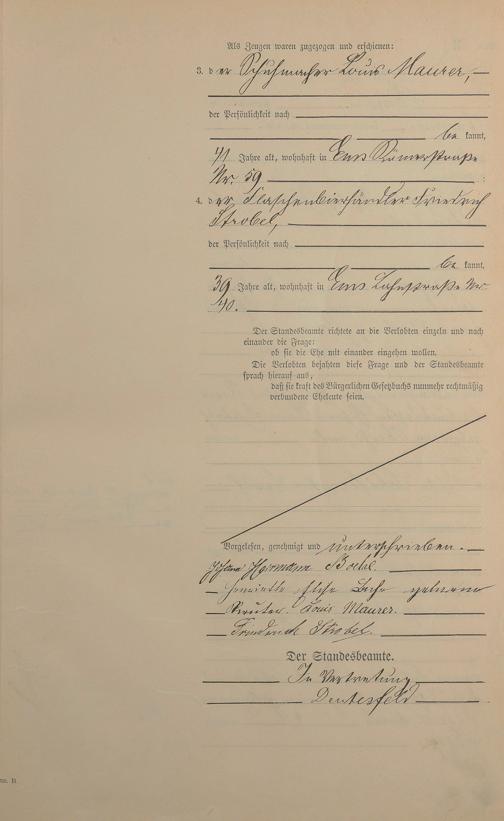 Als Zeugen waren zugezogen und erschienen:
3. der Schuhmacher Louis Maurer,
der Persönlichkeit nach
be kannt,
41 Jahre alt, wohnhaft in Ems Römerstraße
Nr. 59
4. der Flaschenbierhändler Friedrich
Strobel,
der Persönlichkeit nach
be kannt,
39 Jahre alt, wohnhaft in Ems Lahnstraße Nr.
40.
Der Standesbeamte richtete an die Verlobten einzeln und nach
einander die Frage:
ob sie die Ehe mit einander eingehen wollen.
Die Verlobten bejahten diese Frage und der Standesbeamte
sprach hierauf aus,
daß sie kraft des Bürgerlichen Gesetzbuchs nunmehr rechtmäßig
verbundene Eheleute seien.
Vorgelesen, genehmigt und unterschrieben.
Hermann
geborene
Louis Maurer.
Friederich Strobel.
Der Standesbeamte.
In Vertretung